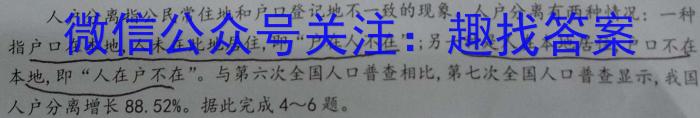 人户分离指公民常住地和户口登记地不一致的现象，人户分离有两种情况：一种
指户口在本地 未在此地居住，即“户在人不在”；另 本地居住 户口不在
微信公众号关注：趣找答案
本地，即“人在户不在”。与第六次全国人口普查相比，第七次全国人口普查显示，我国
人户分离增长88.52%。据此完成4～6题。